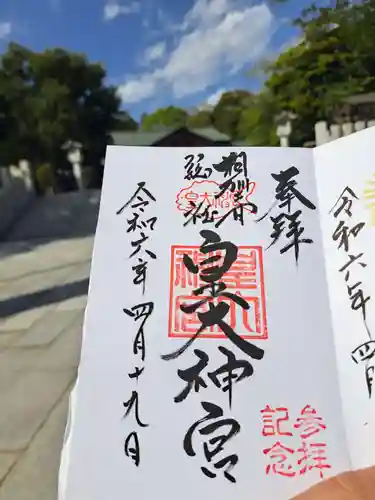 奉拝
相州
鵠沼
皇大神宮
参拝
記念
令和六年四月十九日
令和六年四月